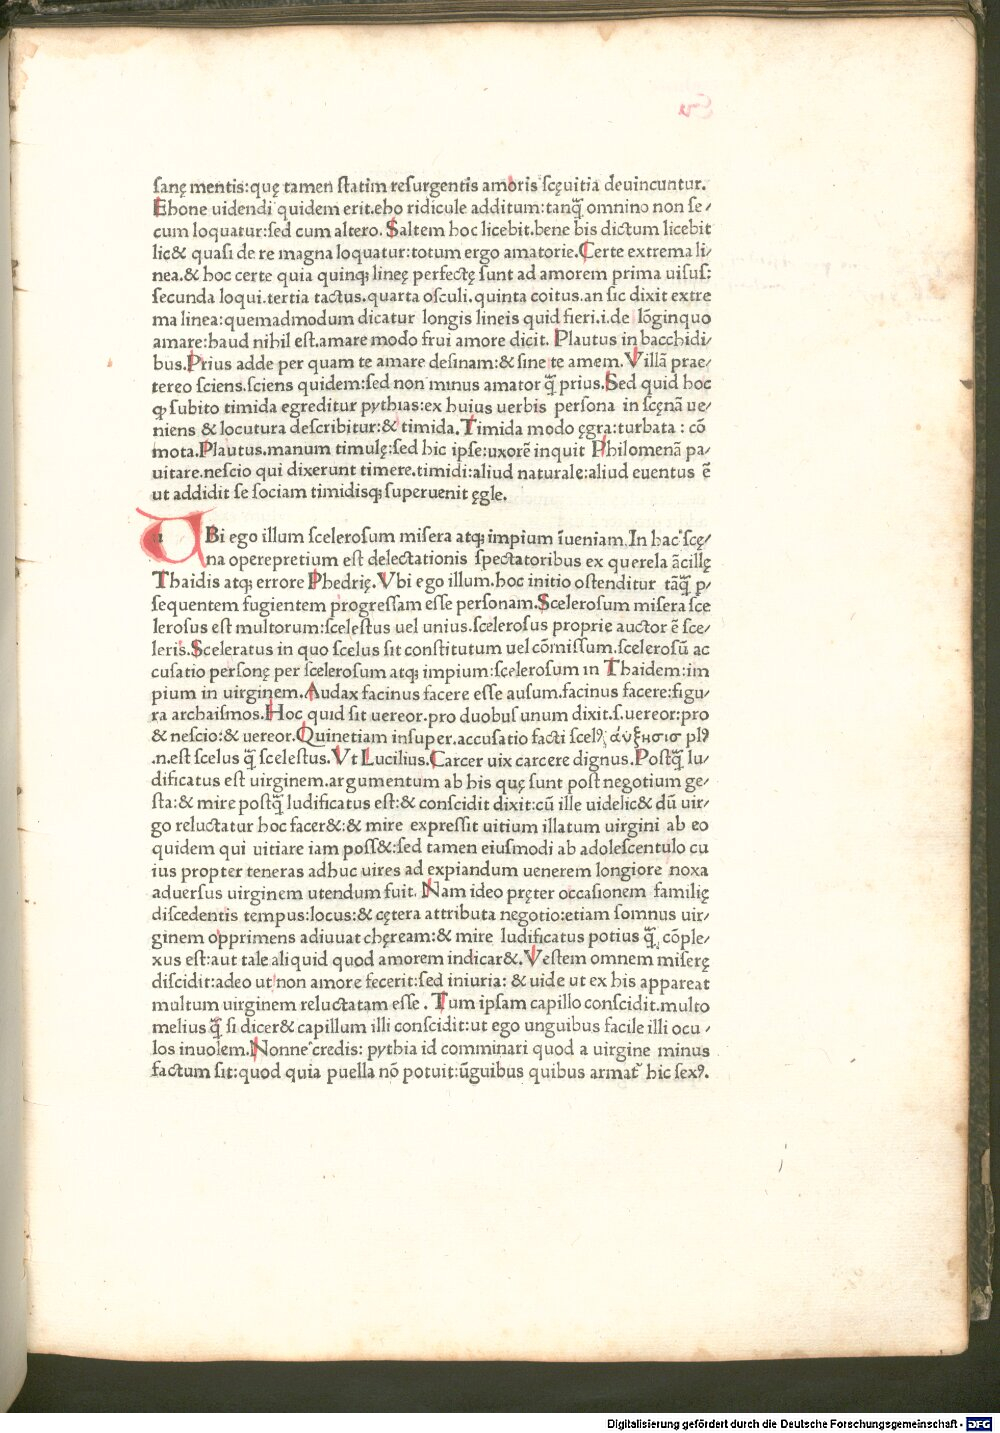 sanę mentis:quę tamen statim resurgentis amoris scęuitia deuincuntur.
Ehone uidendi quidem erit.eho ridicule additum:tanq̃ omnino non se⸗
cum loquatur:sed cum altero. Saltem hoc licebit.bene bis dictum licebit
lic& quasi de re magna loquatur:totum ergo amatorie.Certe extrema li⸗
nea.& hoc certe quia quinqꝫ lineę perfectę sunt ad amorem prima uisus:
secunda loqui.tertia tactus.quarta osculi.quinta coitus.an sic dixit extre
ma linea:quemadmodum dicatur longis lineis quid fieri.i.de lõginquo
amare:haud nihil est.amare modo frui amore dicit. Plautus in bacchidi⸗
bus.Prius adde per quam te amare desinam:& sine te amem.Villã prae⸗
tereo sciens.sciens quidem:sed non minus amator q̃ prius.Sed quid hoc
ꝙ subito timida egreditur pythias:ex huius uerbis persona in scęnã ue⸗
niens & locutura describitur:& timida.Timida modo ęgra:turbata : cõ
mota.Plautus.manum timulę:sed hic ipse:uxorẽ inquit Philomenã pa⸗
uitare.nescio qui dixerunt timere.timidi:aliud naturale:aliud euentus ẽ
ut addidit se sociam timidisqꝫ superuenit ęgle.
VBi ego illum scelerosum misera atqꝫ impium ĩueniam.In hac scę⸗
na operepretium est delectationis spectatoribus ex querela ãcillę
Thaidis atqꝫ errore Phedrię.Vbi ego illum.hoc initio ostenditur tãq̃ p⸗
sequentem fugientem progressam esse personam.Scelerosum misera sce
lerosus est multorum:scelestus uel unius.scelerosus proprie auctor ẽ sce⸗
leris.Sceleratus in quo scelus sit constitutum uel cõmissum.scelerosũ ac
cusatio personę per scelerosum atqꝫ impium:scelerosum in Thaidem:im
pium in uirginem.Audax facinus facere esse ausum.facinus facere:figu⸗
ra archaismos.Hoc quid sit uereor.pro duobus unum dixit.s.uereor:pro
& nescio:& uereor.Quinetiam insuper.accusatio facti scelꝰ; ἀύξησισ plꝰ
.n.est scelus q̃ scelestus.Vt Lucilius.Carcer uix carcere dignus.Postq̃ lu⸗
dificatus est uirginem.argumentum ab his quę sunt post negotium ge⸗
sta:& mire postq̃ ludificatus est:& conscidit dixit:cũ ille uidelic& dũ uir⸗
go reluctatur hoc facer&:& mire expressit uitium illatum uirgini ab eo
quidem qui uitiare iam poss&:sed tamen eiusmodi ab adolescentulo cu
ius propter teneras adhuc uires ad expiandum uenerem longiore noxa
aduersus uirginem utendum fuit. Nam ideo pręter occasionem familię
discedentis tempus:locus:& cętera attributa negotio:etiam somnus uir⸗
ginem opprimens adiuuat chęream:& mire ludificatus potius q̃ cõple⸗
xus est:aut tale aliquid quod amorem indicar&.Vestem omnem miserę
discidit:adeo ut non amore fecerit:sed iniuria: & uide ut ex his appareat
multum uirginem reluctatam esse . Tum ipsam capillo conscidit.multo
melius q̃ si dicer& capillum illi conscidit:ut ego unguibus facile illi ocu ⸗
los inuolem.Nonne credis: pythia id comminari quod a uirgine minus
factum sit:quod quia puella nõ potuit:ũguibus quibus armat᷑ hic sexꝰ.
Digitalisierung gefördert durch die Deutsche Forschungsgemeinschaft - DFG